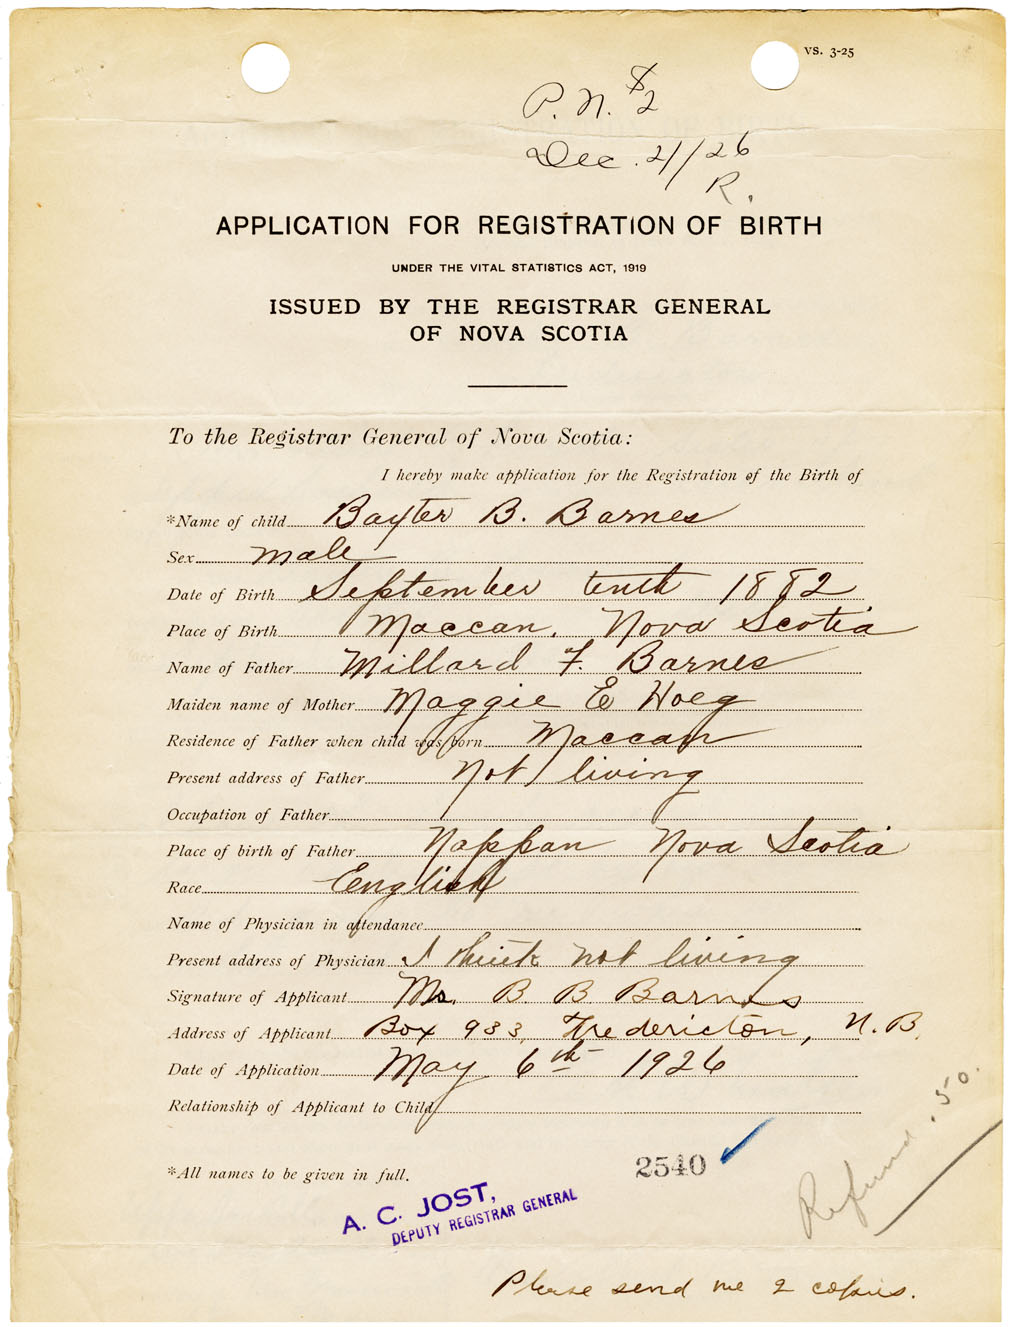 VS. 3-25
P. N. $2
Dec. 21/26
R.
APPLICATION FOR REGISTRATION OF BIRTH
UNDER THE VITAL STATISTICS ACT, 1919
ISSUED BY THE REGISTRAR GENERAL
OF NOVA SCOTIA
To the Registrar General of Nova Scotia:
I hereby make application for the Registration of the Birth of
*Name of child Baxter B. Barnes
Sex male
Date of Birth September tenth 1882
Place of Birth Maccan, Nova Scotia
Name of Father Millard F. Barnes
Maiden name of Mother Maggie E Hoeg
Residence of Father when child was born Maccan
Present address of Father Not living
Occupation of Father
Place of birth of Father Nappan Nova Scotia
Race English
Name of Physician in attendance
Present address of Physician I think not living
Signature of Applicant B. B. Barnes
Address of Applicant Box 933, Fredericton, N. B.
Date of Application May 6th 1926
Relationship of Applicant to Child
*All names to be given in full.
2540
A. C. JOST,
DEPUTY REGISTRAR GENERAL
Refund .50.
Please send me 2 copies.